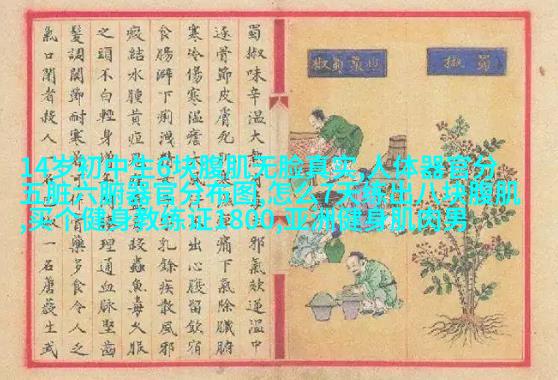 蜀椒
蜀椒
蜀椒味辛溫大 邪氣欬逆溫中
逐骨節皮膚死 痛下氣除臟腑
寒冷傷寒溫瘧 出心腹留飲宿
食腸澼下痢洩 乳餘疾散風邪
瘕結水腫黃疸 殺蟲魚毒久服
之頭不白輕身增 理通血脉堅齒
髮調關節耐寒 藥多食令人乏
氣口閉者殺人 一名 生武
14岁初中生6块腹肌无脸真实,人体器官分
五脏六腑器官分布图,怎么7天练出八块腹肌
,买个健身教练证1800,亚洲健身肌肉男